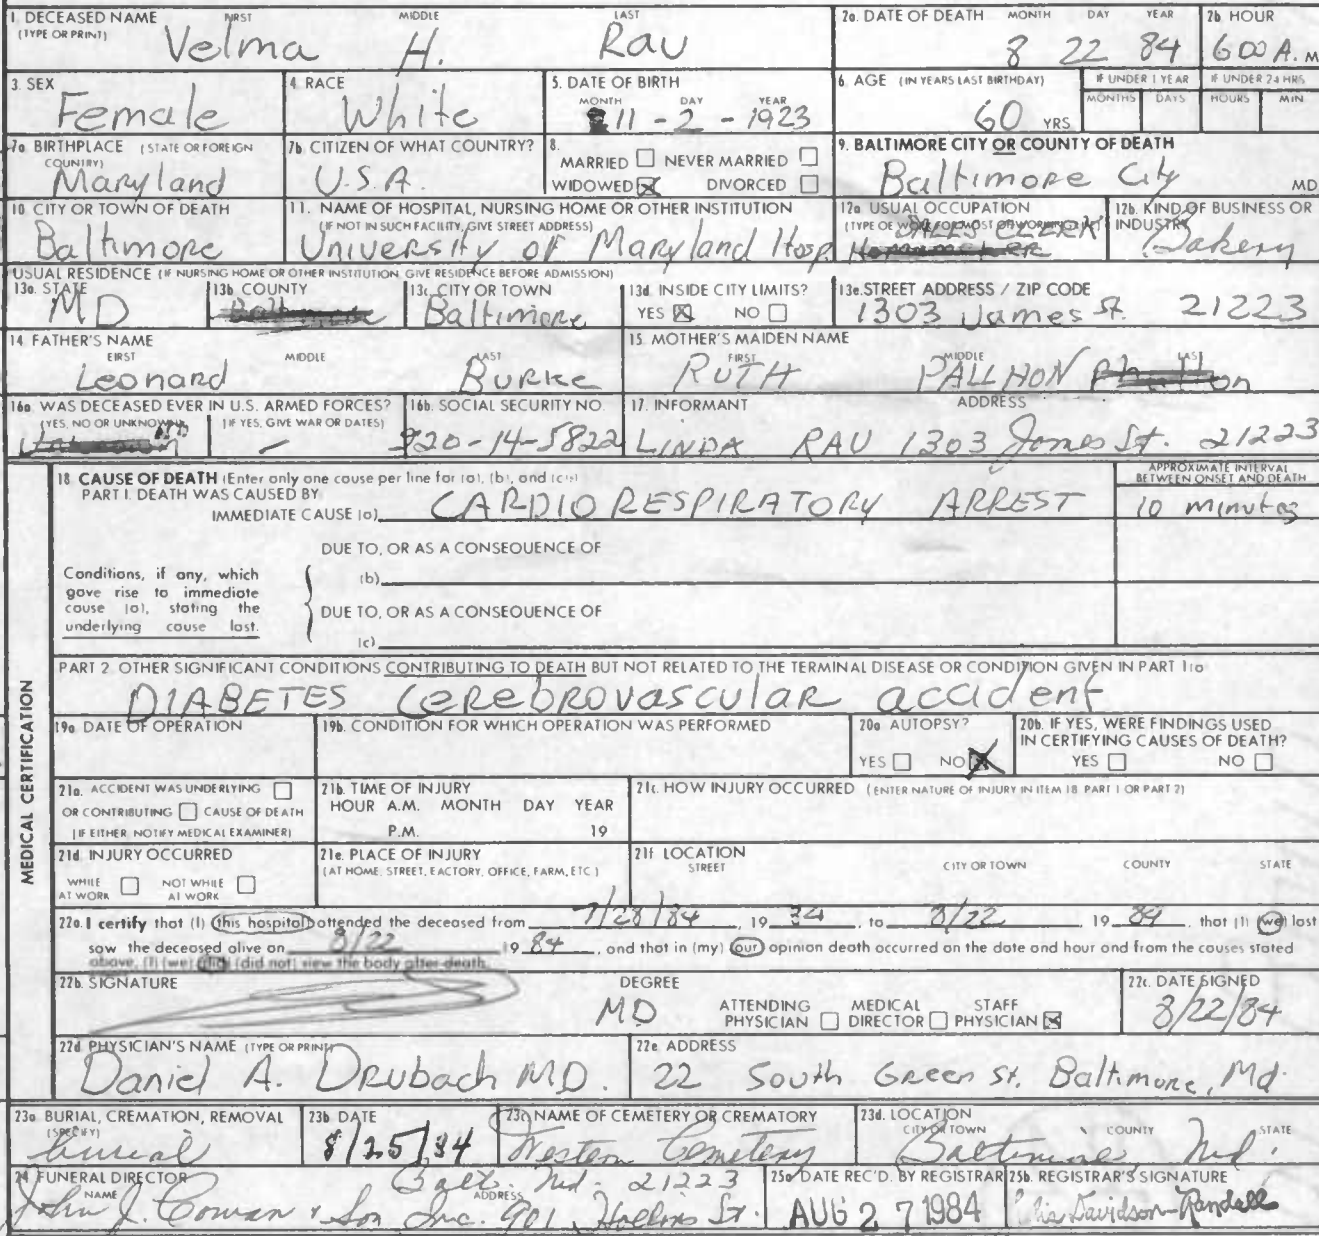 1. DECEASED NAME FIRST MIDDLE LAST
(TYPE OR PRINT) Velma H. Rau
2a. DATE OF DEATH MONTH DAY YEAR
8 22 84
2b. HOUR
6 00 A. M
3. SEX
Female
4. RACE
White
5. DATE OF BIRTH
MONTH DAY YEAR
11 - 2 - 1923
6. AGE (IN YEARS LAST BIRTHDAY)
60 YRS
IF UNDER 1 YEAR
MONTHS DAYS
IF UNDER 24 HRS
HOURS MIN
7a. BIRTHPLACE (STATE OR FOREIGN COUNTRY)
Maryland
7b. CITIZEN OF WHAT COUNTRY?
U.S.A.
8.
MARRIED NEVER MARRIED
WIDOWED DIVORCED
9. BALTIMORE CITY OR COUNTY OF DEATH
Baltimore City MD
10. CITY OR TOWN OF DEATH
Baltimore
11. NAME OF HOSPITAL, NURSING HOME OR OTHER INSTITUTION
(IF NOT IN SUCH FACILITY, GIVE STREET ADDRESS)
University of Maryland Hosp
12a. USUAL OCCUPATION
(TYPE OF WORK FOR MOST OF WORKING
SALES CLERK
12b. KIND OF BUSINESS OR INDUSTRY
Bakery
USUAL RESIDENCE (IF NURSING HOME OR OTHER INSTITUTION, GIVE RESIDENCE BEFORE ADMISSION)
13a. STATE
MD
13b. COUNTY
Baltimore
13c. CITY OR TOWN
Baltimore
13d. INSIDE CITY LIMITS?
YES NO
13e. STREET ADDRESS / ZIP CODE
1303 James St. 21223
14. FATHER'S NAME
FIRST MIDDLE LAST
Leonard Burke
15. MOTHER'S MAIDEN NAME
FIRST MIDDLE LAST
RUTH PALLHON
16a. WAS DECEASED EVER IN U.S. ARMED FORCES?
(YES, NO OR UNKNOWN) (IF YES, GIVE WAR OR DATES)
Unknown —
16b. SOCIAL SECURITY NO.
220-14-5822
17. INFORMANT ADDRESS
LINDA RAU 1303 James St. 21223
18. CAUSE OF DEATH (Enter only one cause per line for (a), (b), and (c))
APPROXIMATE INTERVAL
BETWEEN ONSET AND DEATH
PART I. DEATH WAS CAUSED BY
IMMEDIATE CAUSE (a) CARDIO RESPIRATORY ARREST 10 minutes
DUE TO, OR AS A CONSEQUENCE OF
Conditions, if any, which
gave rise to immediate
cause (a), stating the
underlying cause last.
(b)
DUE TO, OR AS A CONSEQUENCE OF
(c)
PART 2. OTHER SIGNIFICANT CONDITIONS CONTRIBUTING TO DEATH BUT NOT RELATED TO THE TERMINAL DISEASE OR CONDITION GIVEN IN PART 1(a)
DIABETES cerebrovascular accident
MEDICAL CERTIFICATION
19a. DATE OF OPERATION
19b. CONDITION FOR WHICH OPERATION WAS PERFORMED
20a. AUTOPSY?
YES NO
20b. IF YES, WERE FINDINGS USED
IN CERTIFYING CAUSES OF DEATH?
YES NO
21a. ACCIDENT WAS UNDERLYING
OR CONTRIBUTING CAUSE OF DEATH
(IF EITHER NOTIFY MEDICAL EXAMINER)
21b. TIME OF INJURY
HOUR A.M. MONTH DAY YEAR
P.M. 19
21c. HOW INJURY OCCURRED (ENTER NATURE OF INJURY IN ITEM 18 PART 1 OR PART 2)
21d. INJURY OCCURRED
WHILE AT WORK NOT WHILE AT WORK
21e. PLACE OF INJURY
(AT HOME, STREET, FACTORY, OFFICE, FARM, ETC.)
21f. LOCATION
STREET CITY OR TOWN COUNTY STATE
22a. I certify that (I) (this hospital) attended the deceased from 7/28/84, 19 84, to 8/22 19 84, that (I) (we) last
saw the deceased alive on 8/22 19 84, and that in (my) (our) opinion death occurred on the date and hour and from the causes stated
above, (I) (we) (did) (did not) view the body after death.
22b. SIGNATURE
DEGREE
MD
ATTENDING PHYSICIAN MEDICAL DIRECTOR STAFF PHYSICIAN
22c. DATE SIGNED
8/22/84
22d. PHYSICIAN'S NAME (TYPE OR PRINT)
Daniel A. Drubach M.D.
22e. ADDRESS
22 South Green St. Baltimore, Md.
23a. BURIAL, CREMATION, REMOVAL
(SPECIFY)
burial
23b. DATE
8/25/84
23c. NAME OF CEMETERY OR CREMATORY
Western Cemetery
23d. LOCATION
CITY OR TOWN COUNTY STATE
Baltimore Md.
24. FUNERAL DIRECTOR
NAME ADDRESS
Balt. Md. 21223
John J. Cowan & Son Inc. 901 Hollins St.
25a. DATE REC'D. BY REGISTRAR
AUG 27 1984
25b. REGISTRAR'S SIGNATURE
Davidson-Randall